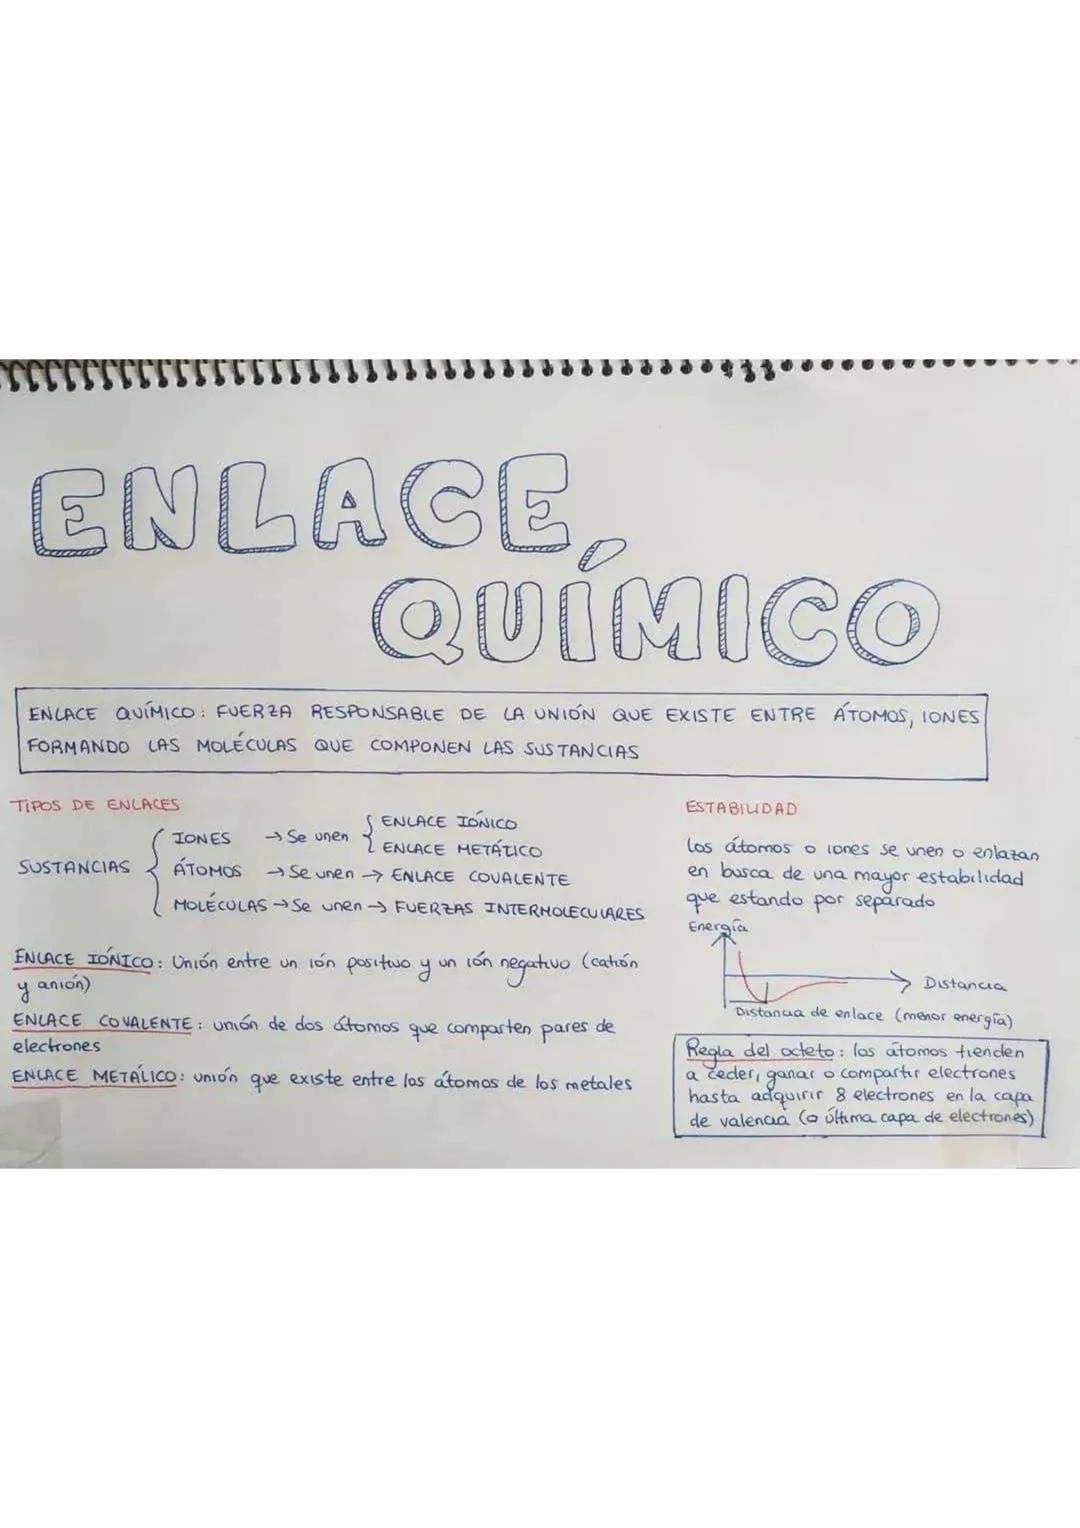 ENLACE
QUÍMICO
ENLACE QUÍMICO: FUERZA RESPONSABLE DE LA UNIÓN QUE EXISTE ENTRE ÁTOMOS, IONES
FORMANDO LAS MOLÉCULAS QUE COMPONEN LAS SUSTANCIAS
TIPOS DE ENLACES
SUSTANCIAS
IONES → Se unen
ENLACE IÓNICO
ENLACE METÁTICO
ÁTOMOS → Se unen → ENLACE COVALENTE
MOLÉCULAS → Se unen → FUERZAS INTERMOLECULARES
ENLACE IÓNICO: Unión entre un ión positivo y un ión negativo (catión
y anión)
ENLACE COVALENTE: unión de dos átomos que comparten pares de
electrones
ENLACE METÁLICO: unión que existe entre los átomos de los metales
ESTABILIDAD
Los átomos o iones se unen o enlazan
en busca de una mayor estabilidad
que estando por separado
Energía
Distancia
Distancia de enlace (menor energía)
Regla del octeto: los átomos tienden
a ceder, ganar o compartir electrones
hasta adquirir 8 electrones en la capa
de valencia (o última capa de electrones)